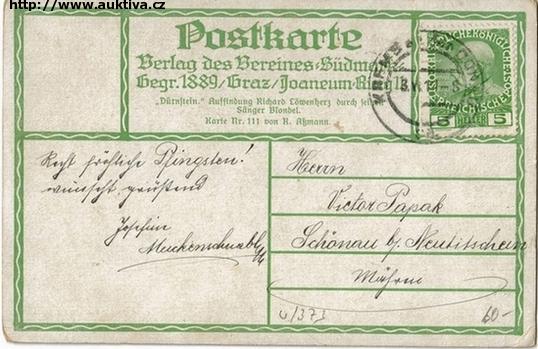 http://www.auktiva.cz
Postkarte
Verlag des Vereines „Südma
Gegr. 1889/Graz/Joaneum-Ring 11
„Dürnstein.“ Auffindung Richard Löwenherz durch sei
Sänger Blondel.
Karte Nr. 111 von R. Aßmann.
5 HELLER 5
Recht fröhliche Pfingsten!
wünscht grüßend
Josefine
Muckenschnabl
Herrn
Victor Papak
Schönau b/ Neutitschein
Mähren
u/373
60-